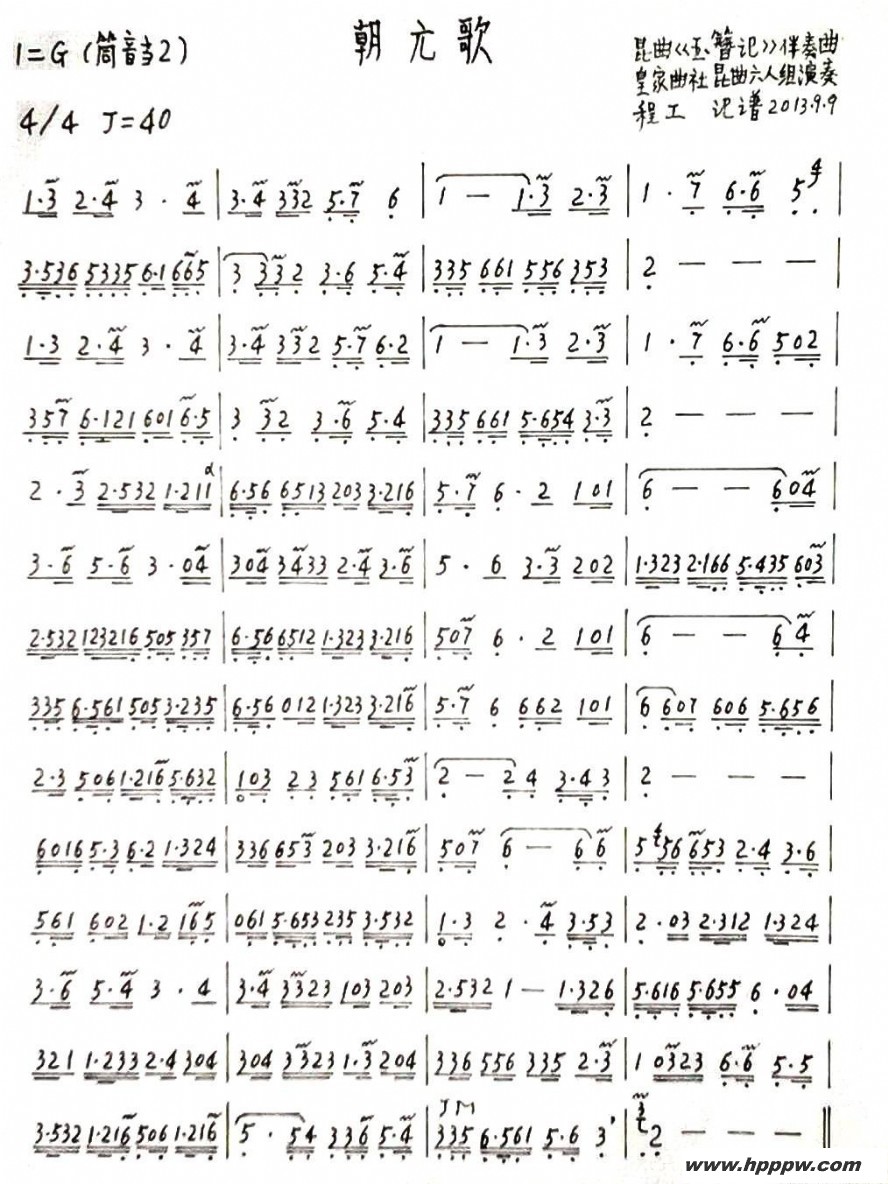 朝元歌
1=G（筒音当2）
昆曲《玉簪记》伴奏曲
皇家曲社昆曲六人组演奏
4/4 J=40
程工 记谱2013.9.9
1·3 2·4 3 · 4 | 3·4 332 5·7 6 | 1 — 1·3 2·3 | 1 · 7 6·6 5 |
3·536 5335 6·1 665 | 3 332 3·6 5·4 | 335 661 556 353 | 2 — — —
1·3 2·4 3 · 4 | 3·4 332 5·7 6·2 | 1 — 1·3 2·3 | 1 · 7 6·6 502 |
357 6·121 601 6·5 | 3 32 3·6 5·4 | 335 661 5·654 3·3 | 2 — — — |
2 · 3 2·532 1·211 | 6·56 6513 203 3·216 | 5·7 6 · 2 101 | 6 — — 604 |
3·6 5·6 3 · 04 | 304 3433 2·4 3·6 | 5 · 6 3·3 202 | 1·323 2·166 5·435 603 |
2·532 123216 505 357 | 6·56 6512 1·323 3·216 | 507 6 · 2 101 | 6 — — 6 4 |
335 6·561 505 3·235 | 6·56 012 1·323 3·216 | 5·7 6 662 101 | 6 607 606 5·656 |
2·3 506 1·216 5·632 | 103 23 561 6·53 | 2 — 2 4 3·4 3 | 2 — — — |
6016 5·3 6·2 1·324 | 336 653 203 3·216 | 507 6 — 6 6 | 5 56 6653 2·4 3·6 |
561 602 1·2 165 | 061 5·653 235 3·532 | 1·3 2 · 4 3·53 | 2 · 03 2·312 1·324 |
3·6 5·4 3 · 4 | 3·4 3323 103 203 | 2·532 1 — 1·326 | 5·616 5·655 6 · 04 |
321 1·233 2·4 304 | 304 3323 1·3 204 | 336 556 335 2·3 | 1 0323 6·6 5·5 |
3·532 1·216 506 1·216 | 5 · 54 336 5·4 | 335 6·561 5·6 3' | 2 — — — ‖
www.hpppw.com